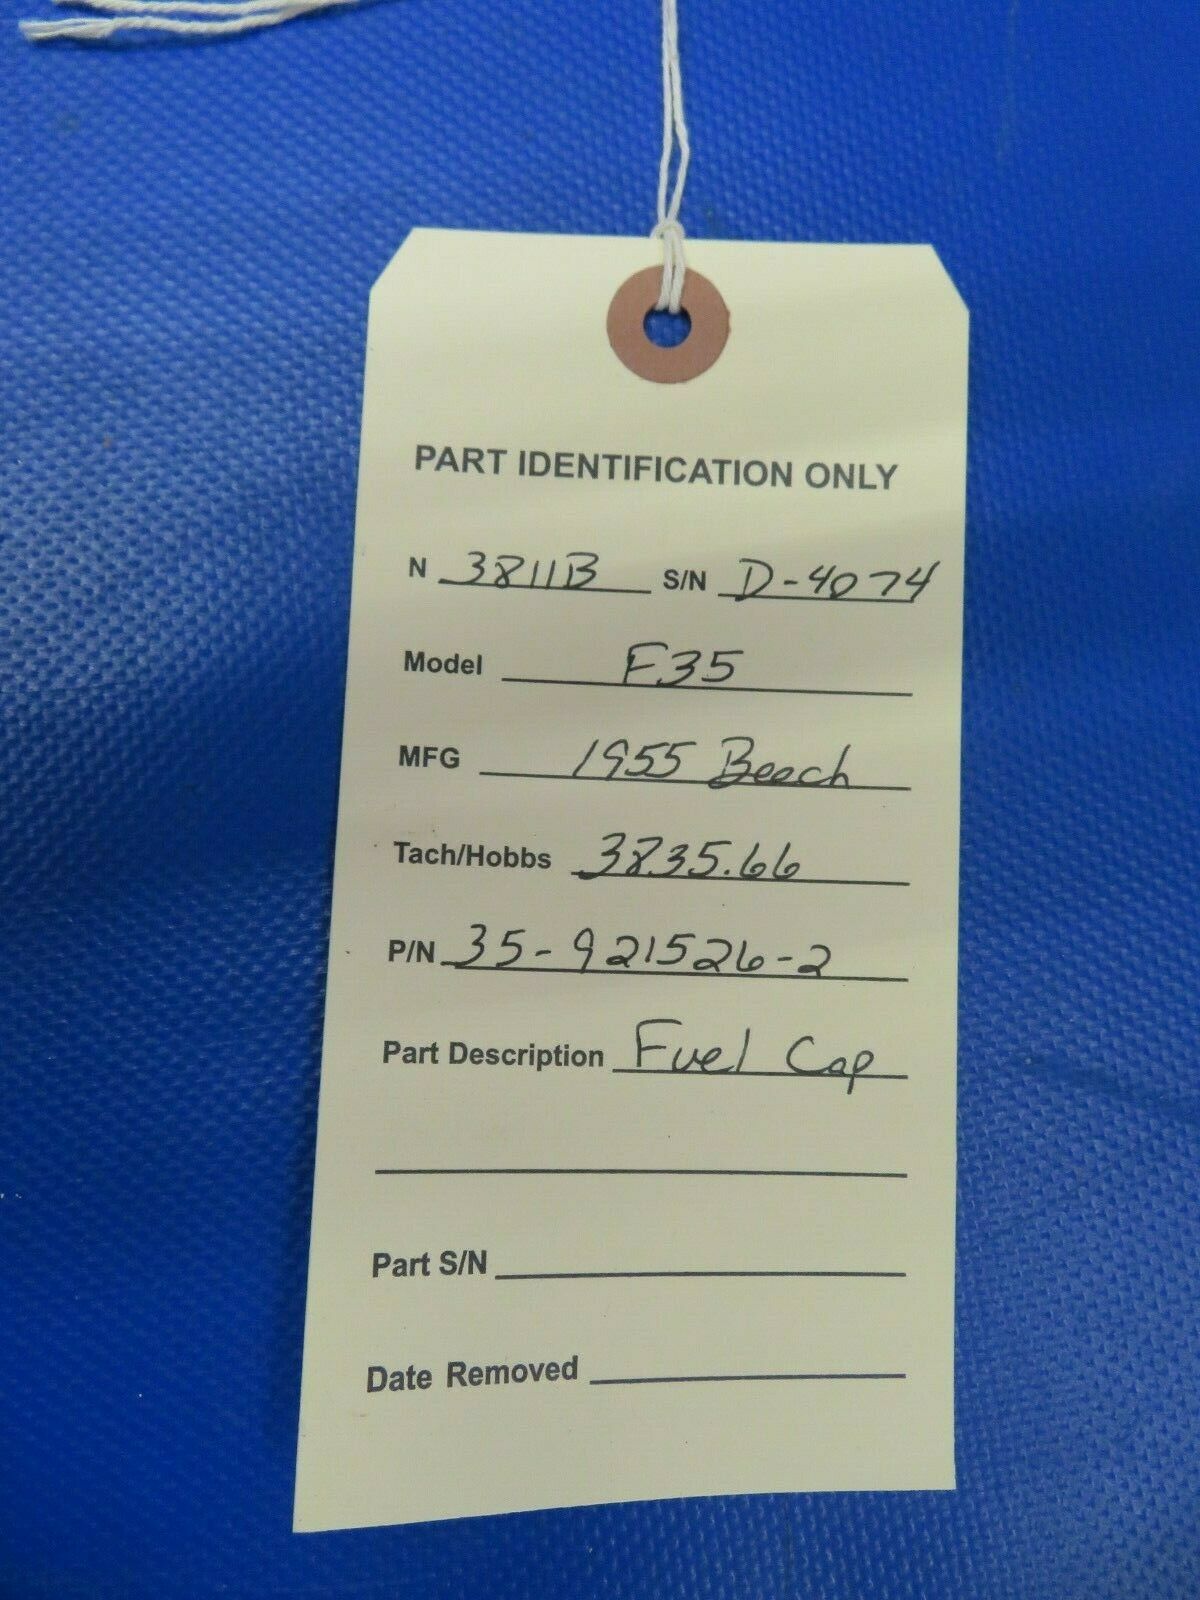 PART IDENTIFICATION ONLY
N 3811B S/N D-4074
Model F35
MFG 1955 Beech
Tach/Hobbs 3835.66
P/N 35-921526-2
Part Description Fuel Cap
Part S/N
Date Removed